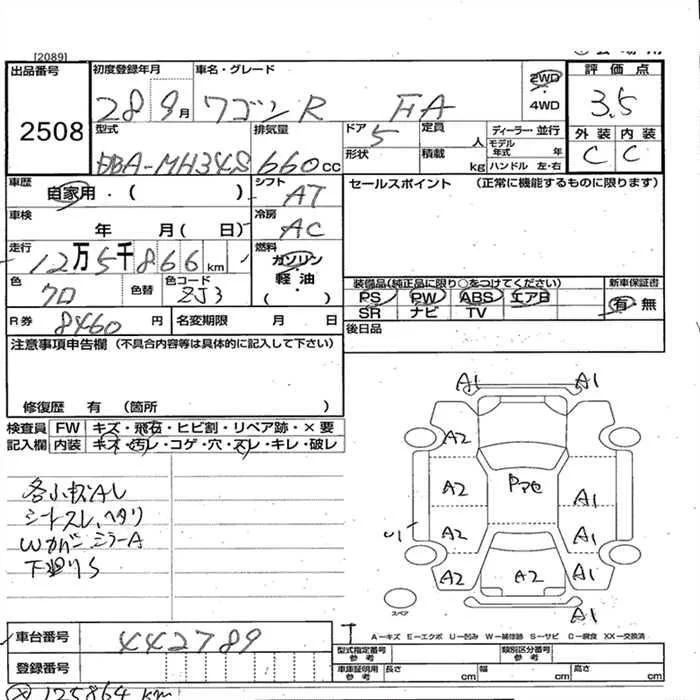 [2089]
出品番号
2508
初度登録年月
28 9月
車名・グレード
ワゴンR FA
2WD
4WD
評価点
3.5
外装 内装
C C
型式
DBA-MH34S
排気量
660cc
ドア
5
定員
人
形状
積載
kg
ディーラー・並行
モデル年式 年
ハンドル 左・右
車歴
自家用・( )
シフト
AT
車検
年 月( 日)
冷房
AC
走行
12万5千866km
燃料
ガソリン
・
軽油
( )
色
クロ
色替
色コード
ZJ3
セールスポイント (正常に機能するものに限ります)
装備品(純正品に限り○をつけてください)
PS PW ABS エアB
SR ナビ TV
新車保証書
有 無
後日品
R券 8460円
名変期限 月 日
注意事項申告欄(不具合内容等は具体的に記入して下さい)
修復歴 有 (箇所 )
検査員 FW キズ・飛石・ヒビ割・リペア跡・×要
記入欄 内装 キズ・汚レ・コゲ・穴・スレ・キレ・破レ
シートスレ、ヘタリ
WカバーミラーA
下廻りS
A1 A1
A2
A2 Pアセ A1
U1 A2 A1
A2 A2 A1
A1
スペア
A—キズ E—エクボ U—凹み W—補修跡 S—サビ C—腐食 XX—交換済
車台番号 442789
登録番号
型式指定番号
参考
類別区分番号
参考
車庫証明用
参考
長さ cm 幅 cm 高さ cm
125864 km